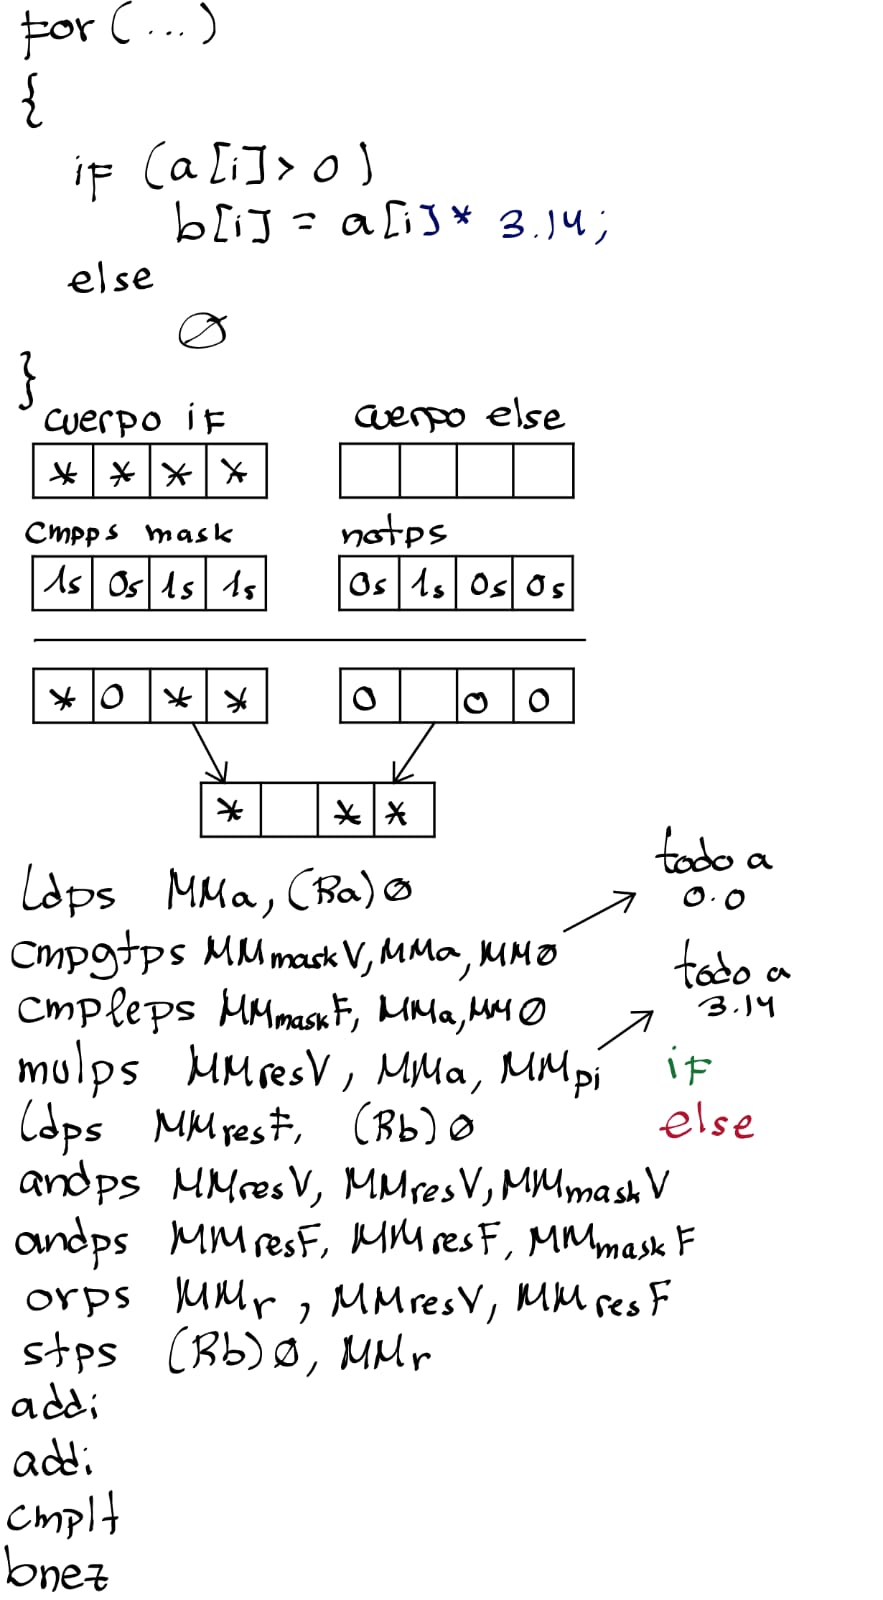 for (...)
{
if (a[i] > 0)
b[i] = a[i] * 3.14;
else
∅
}
cuerpo if cuerpo else
* * * *
cmpps mask notps
1s 0s 1s 1s 0s 1s 0s 0s
* 0 * * 0 0 0
* * *
todo a
ldps MMa, (Ra)0 0.0
cmpgtps MMmaskV, MMa, MM0
todo a
cmpleps MMmaskF, MMa, MM0 3.14
mulps MMresV, MMa, MMpi if
ldps MMresF, (Rb)0 else
andps MMresV, MMresV, MMmaskV
andps MMresF, MMresF, MMmaskF
orps MMr, MMresV, MMresF
stps (Rb)0, MMr
addi
addi
cmplt
bnez